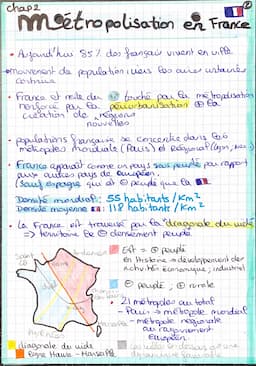 chap 2
Métropolisation en France
②
• Aujourd'hui 85% des français vivent en ville
→ mouvement de population vers les aires urbaines continue
• France et reste du touché par la métropolisation
renforcé par la périurbanisation ⊕ la
création de régions
nouvelles
• populations française se concentre dans les
métropoles mondiale (Paris) et Régional (Lyon,
• France apparaît comme un pays sans peuplé par rapport
aux autres pays de européen.
(sauf espagne qui a ⊖ peuplé que la
Densité mondial: 55 habitants/Km²
Densité moyenne : 118 habitant/Km²
• La France est traversé par la "diagonale du vide"
⇒ territoire le ⊖ densément peuplé
Est = ⊕ peuplé
en Histoire → développement des
activités économique, industriel
⊖ peuplé, ⊕ rurale
• 21 métropoles au total
- Paris → métropole mondial
- métropole régionale
au rayonnement
Européen
diagonale du vide
ligne Havre - Marseille